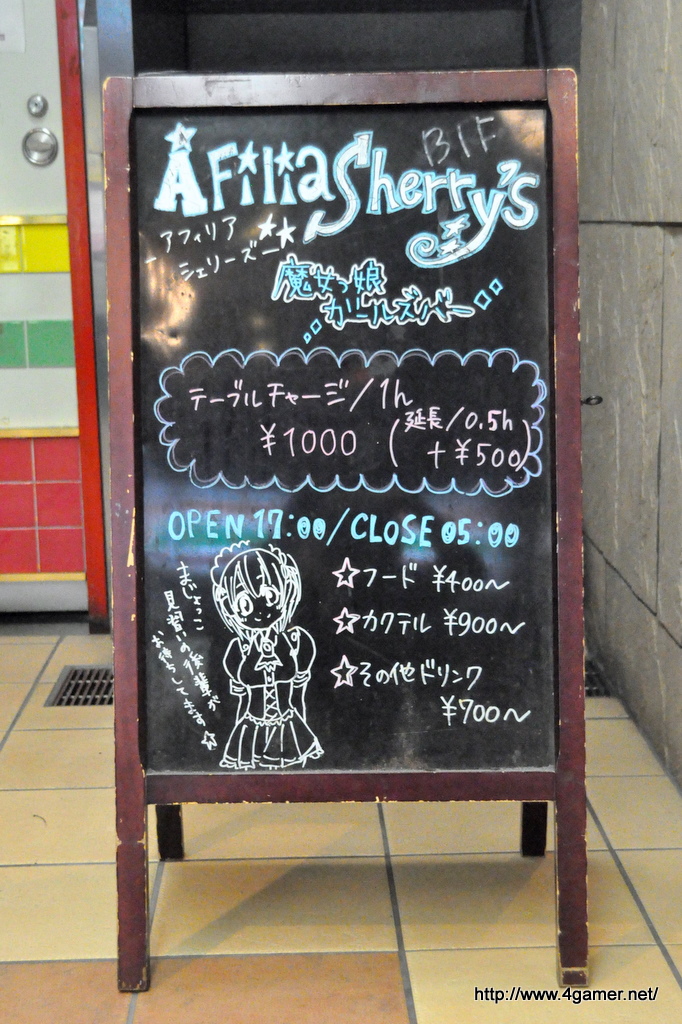 B1F
AFilia Sherry's
アフィリア
シェリーズ
魔女っ娘
ガールズバー
テーブルチャージ/1h
¥1000
(延長/0.5h
+¥500)
OPEN 17:00/CLOSE 05:00
☆フード ¥400～
☆カクテル ¥900～
☆その他ドリンク
¥700～
まじょっこ
見習いの後輩が
お待ちしてます☆
http://www.4gamer.net/